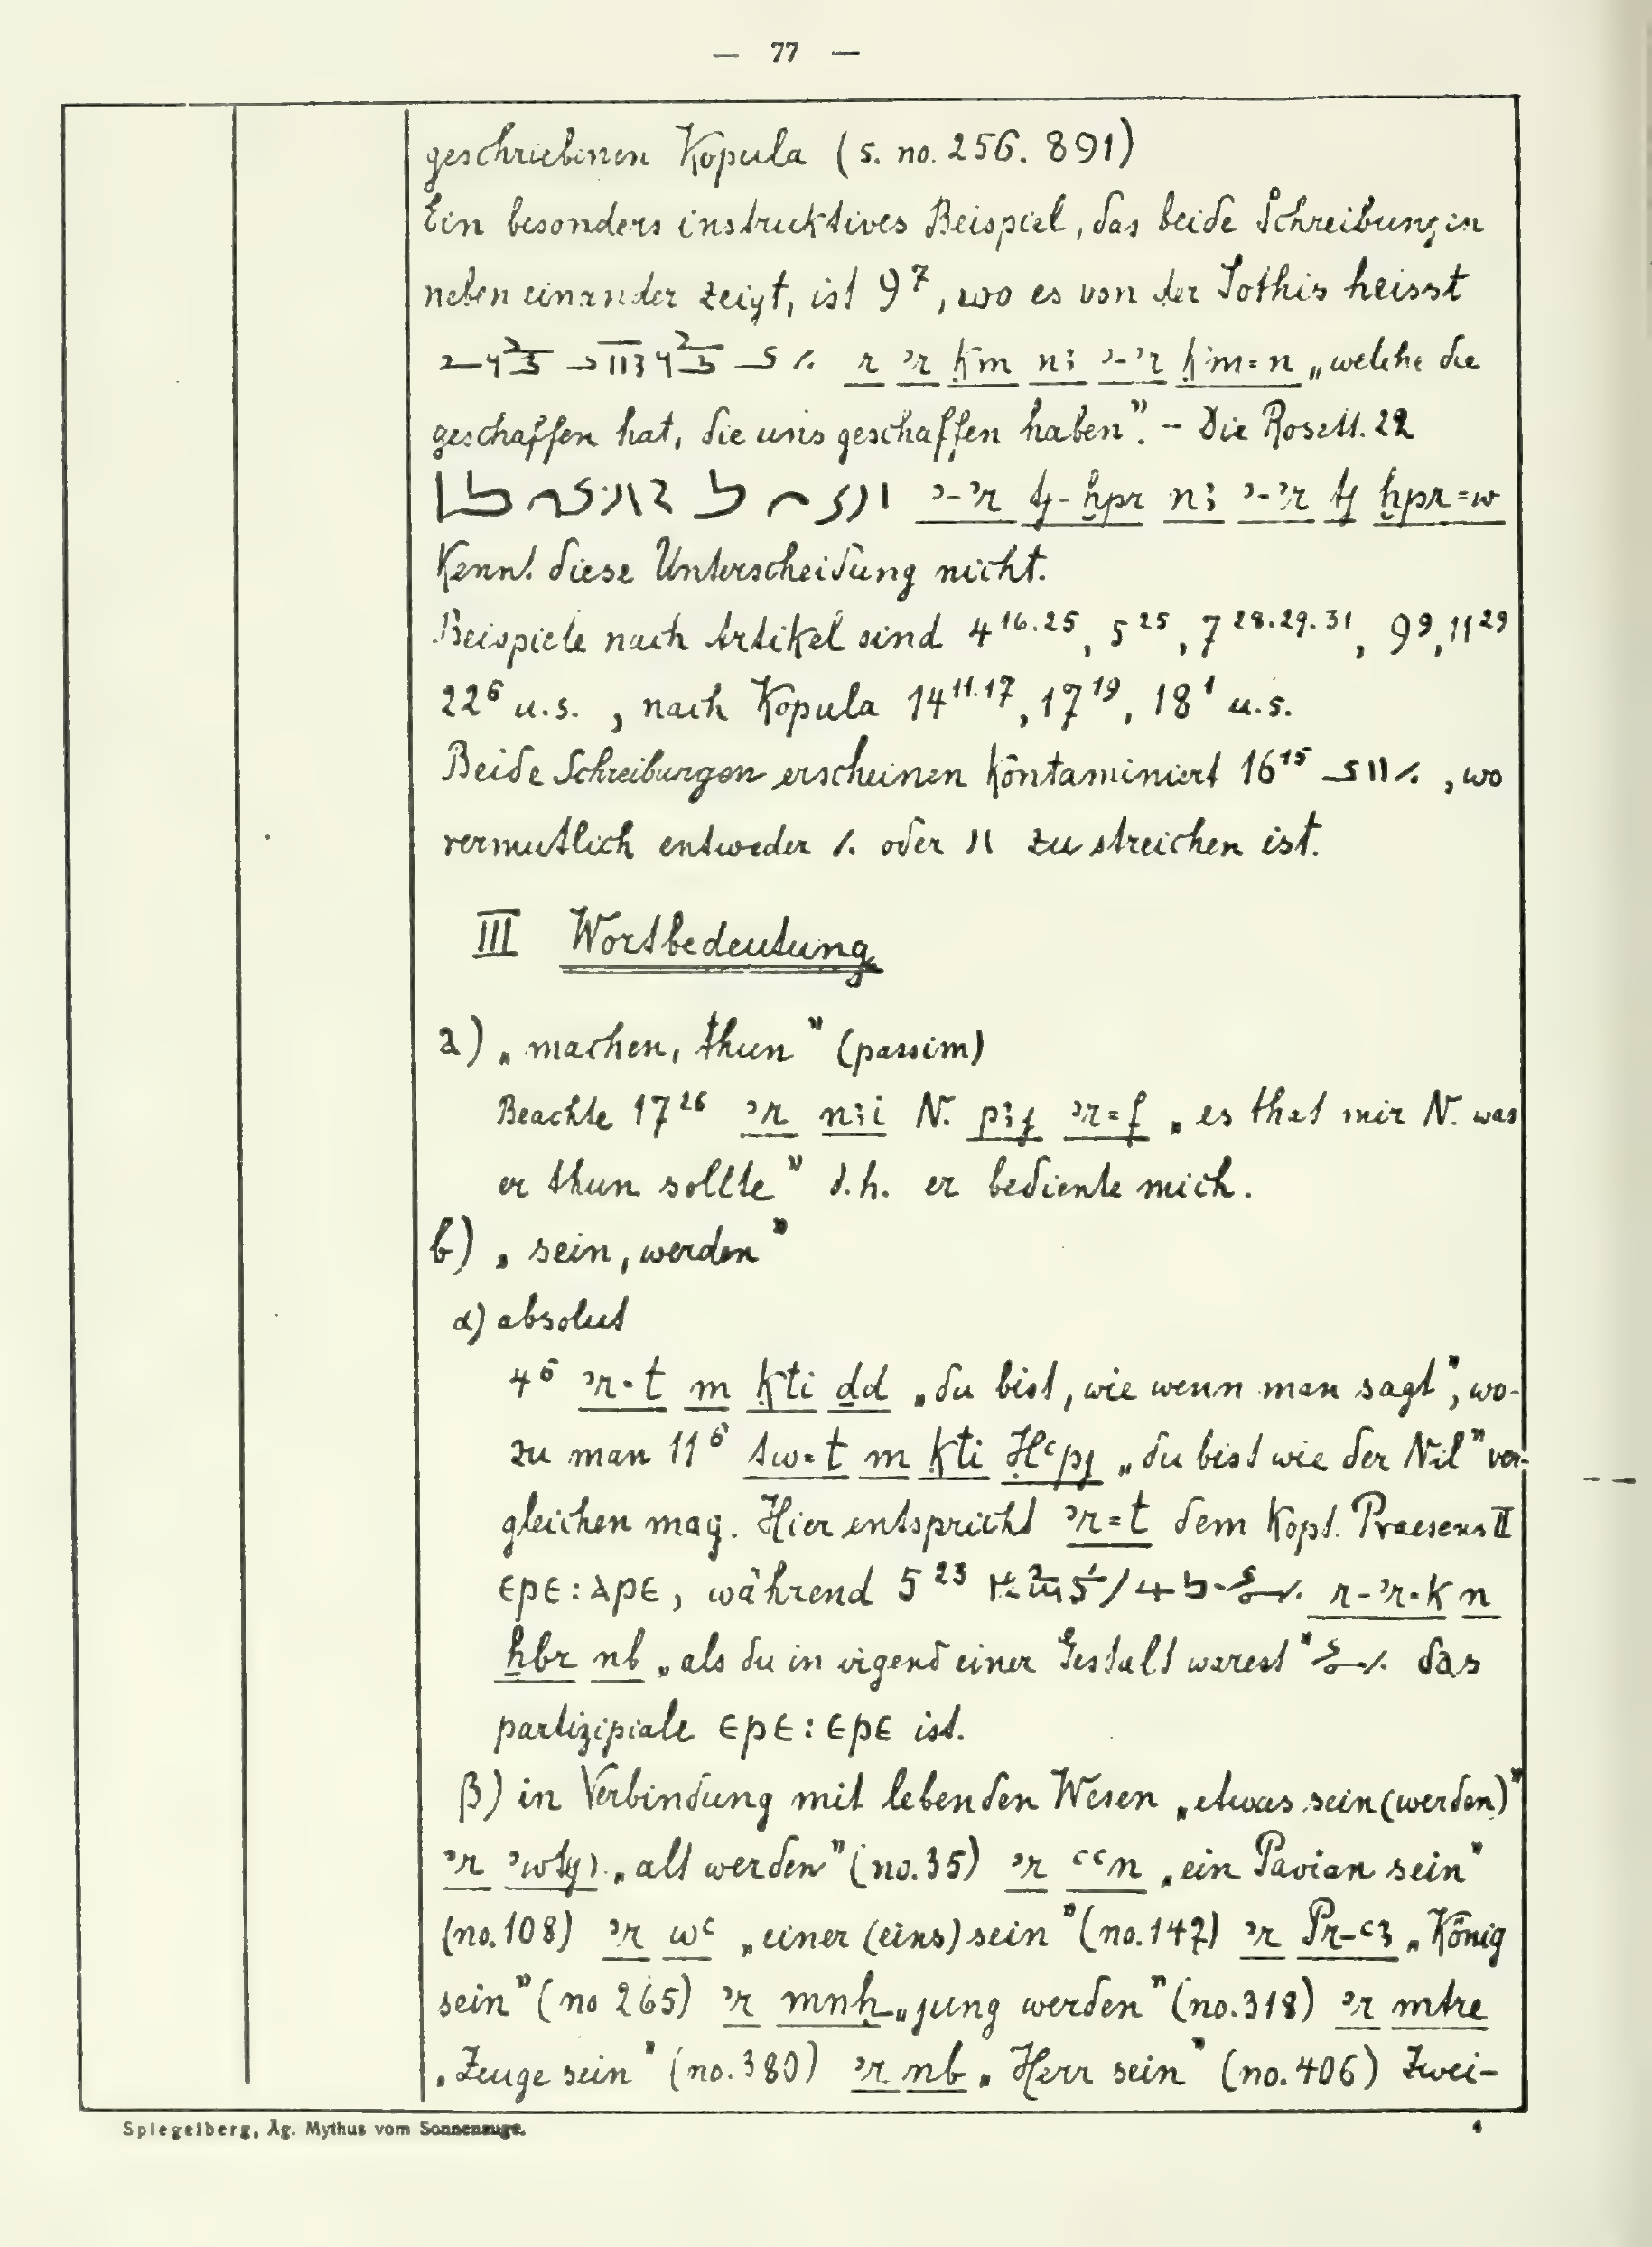 — 77 —
geschriebenen Kopula (s. no. 256. 891)
Ein besonders instruktives Beispiel, das beide Schreibungen
neben einander zeigt, ist 9⁷, wo es von der Sothis heisst
r ꜥr ḳm nꜣ ꜣ-ꜥr ḳm=n „welche die
geschaffen hat, die uns geschaffen haben". – Die Rosett. 22
ꜣ-ꜥr ḫpr nꜣ ꜣ-ꜥr ḫpr=w
kennt diese Unterscheidung nicht.
Beispiele nach Artikel sind 4¹⁶·²⁵, 5²⁵, 7²⁸·²⁹·³¹, 9⁹, 11²⁹
22⁶ u.s., nach Kopula 14¹¹·¹⁷, 17¹⁹, 18¹ u.s.
Beide Schreibungen erscheinen kontaminiert 16¹⁵ , wo
vermutlich entweder /. oder 11 zu streichen ist.
III Wortbedeutung
a) „machen, thun" (passim)
Beachte 17²⁶ ꜥr nꜣi N. pꜣj ꜥr=f „es that mir N. was
er thun sollte" d.h. er bediente mich.
b) „sein, werden"
α) absolut
4⁶ ꜥr·t m ḳti ḏd „du bist, wie wenn man sagt", wo-
zu man 11⁶ m ḳti Ḥꜥpj „du bist wie der Nil" ver-
gleichen mag. Hier entspricht ꜥr=t dem kopt. Praesens II
ⲉⲣⲉ : ⲁⲣⲉ, während 5²³ r-ꜥr·k n
ẖbr nb „als du in irgend einer Gestalt warest" das
partizipiale ⲉⲣⲉ : ⲉⲣⲉ ist.
β) in Verbindung mit lebenden Wesen „etwas sein (werden)"
ꜥr „alt werden" (no. 35) ꜥr ꜥꜥn „ein Pavian sein"
(no. 108) ꜥr wꜥ „einer (eins) sein" (no. 147) ꜥr Pr-ꜥꜣ „König
sein" (no 265) ꜥr mnḥ „jung werden" (no. 318) ꜥr mtre
„Zeuge sein" (no. 380) ꜥr nb „Herr sein" (no. 406) Zwei-
Spiegelberg, Äg. Mythus vom Sonnenauge.
4